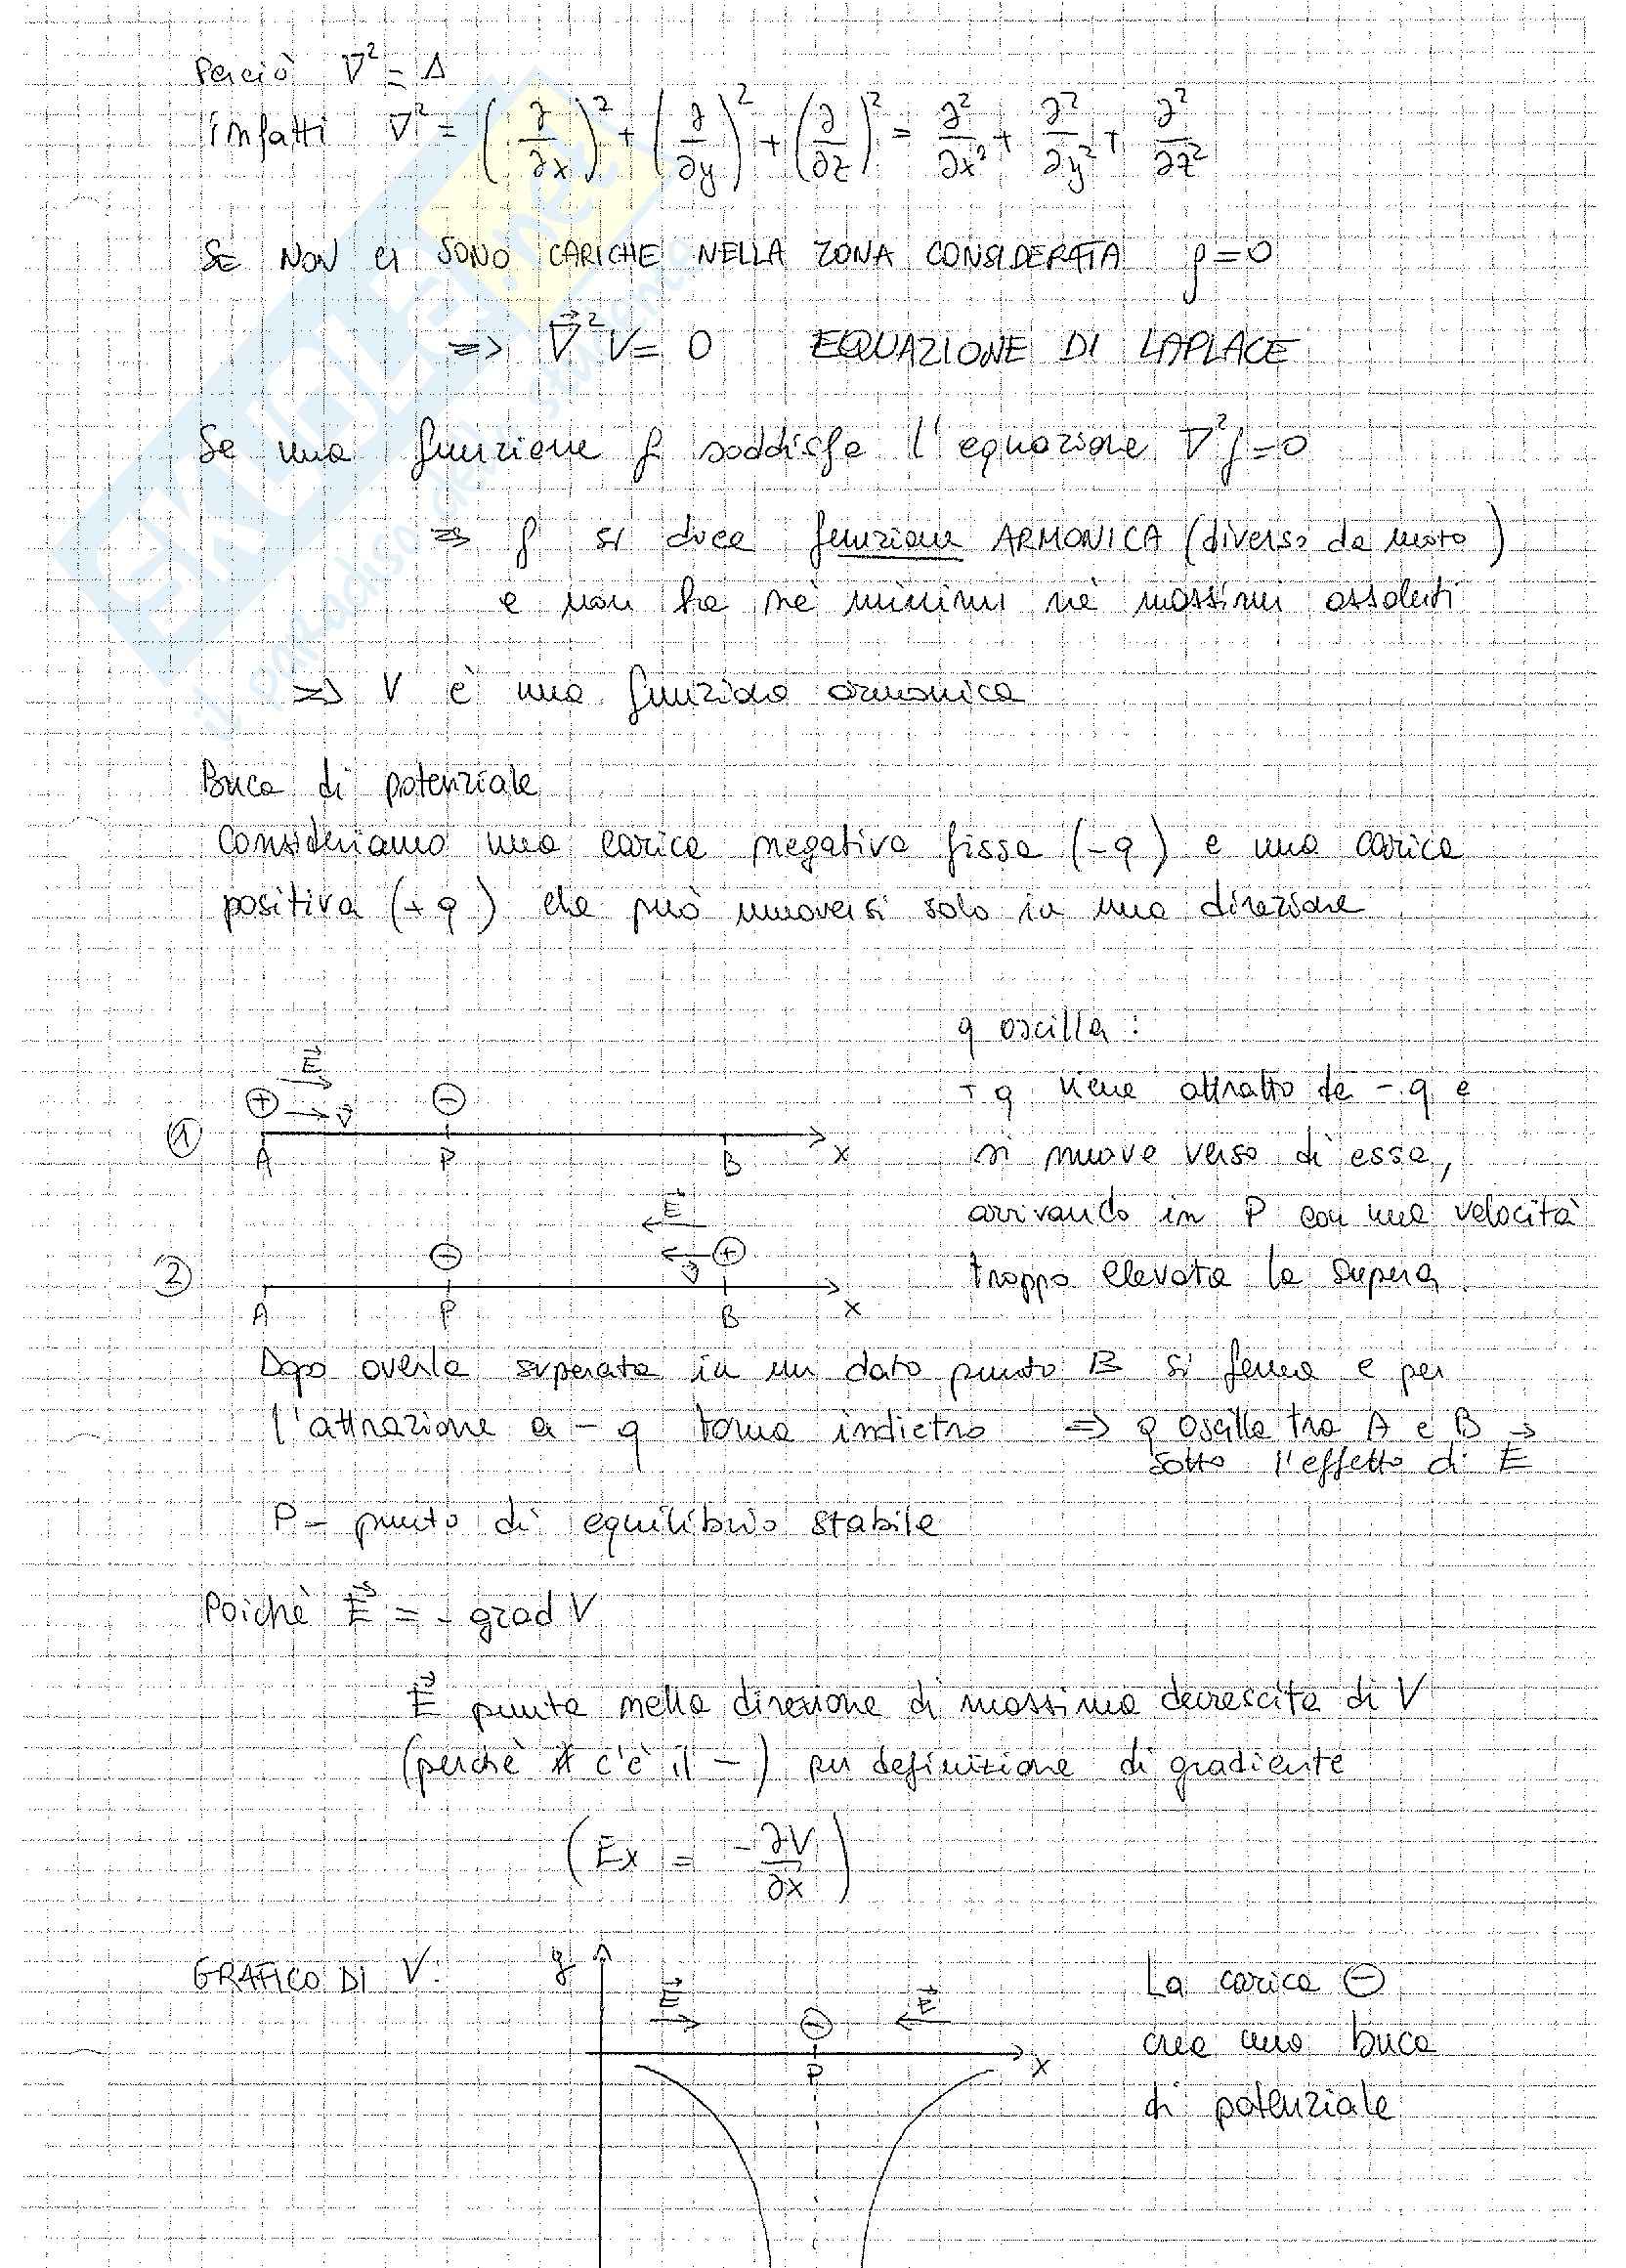 Perciò ∇² = Δ
infatti ∇² = (∂/∂x)² + (∂/∂y)² + (∂/∂z)² = ∂²/∂x² + ∂²/∂y² + ∂²/∂z²
SE NON CI SONO CARICHE NELLA ZONA CONSIDERATA ρ=0
=> ∇⃗²V = 0 EQUAZIONE DI LAPLACE
Se una funzione f soddisfa l'equazione ∇²f=0
=> f si dice funzione ARMONICA (diverso da moto)
e non ha nè minimi nè massimi assoluti
=> V è una funzione armonica
Buca di potenziale
Consideriamo una carica negativa fissa (-q) e una carica
positiva (+q) che può muoversi solo in una direzione
q oscilla:
+q viene attratto da -q e
si muove verso di essa,
arrivando in P con una velocità
troppo elevata la supera.
① E⃗ ⊕ v⃗ ⊖ A P B x
② E⃗ ⊖ v⃗ ⊕ A P B x
Dopo averla superata in un dato punto B si ferma e per
l'attrazione a -q torna indietro => q oscilla tra A e B
sotto l'effetto di E⃗
P - punto di equilibrio stabile
Poichè E⃗ = - grad V
E⃗ punta nella direzione di massima decrescita di V
(perchè c'è il -) per definizione di gradiente
(Ex = -∂V/∂x)
GRAFICO DI V:
y E⃗ ⊖ E⃗ P x
La carica ⊖
crea una buca
di potenziale
SKUOLA.net
il paradiso dello studente